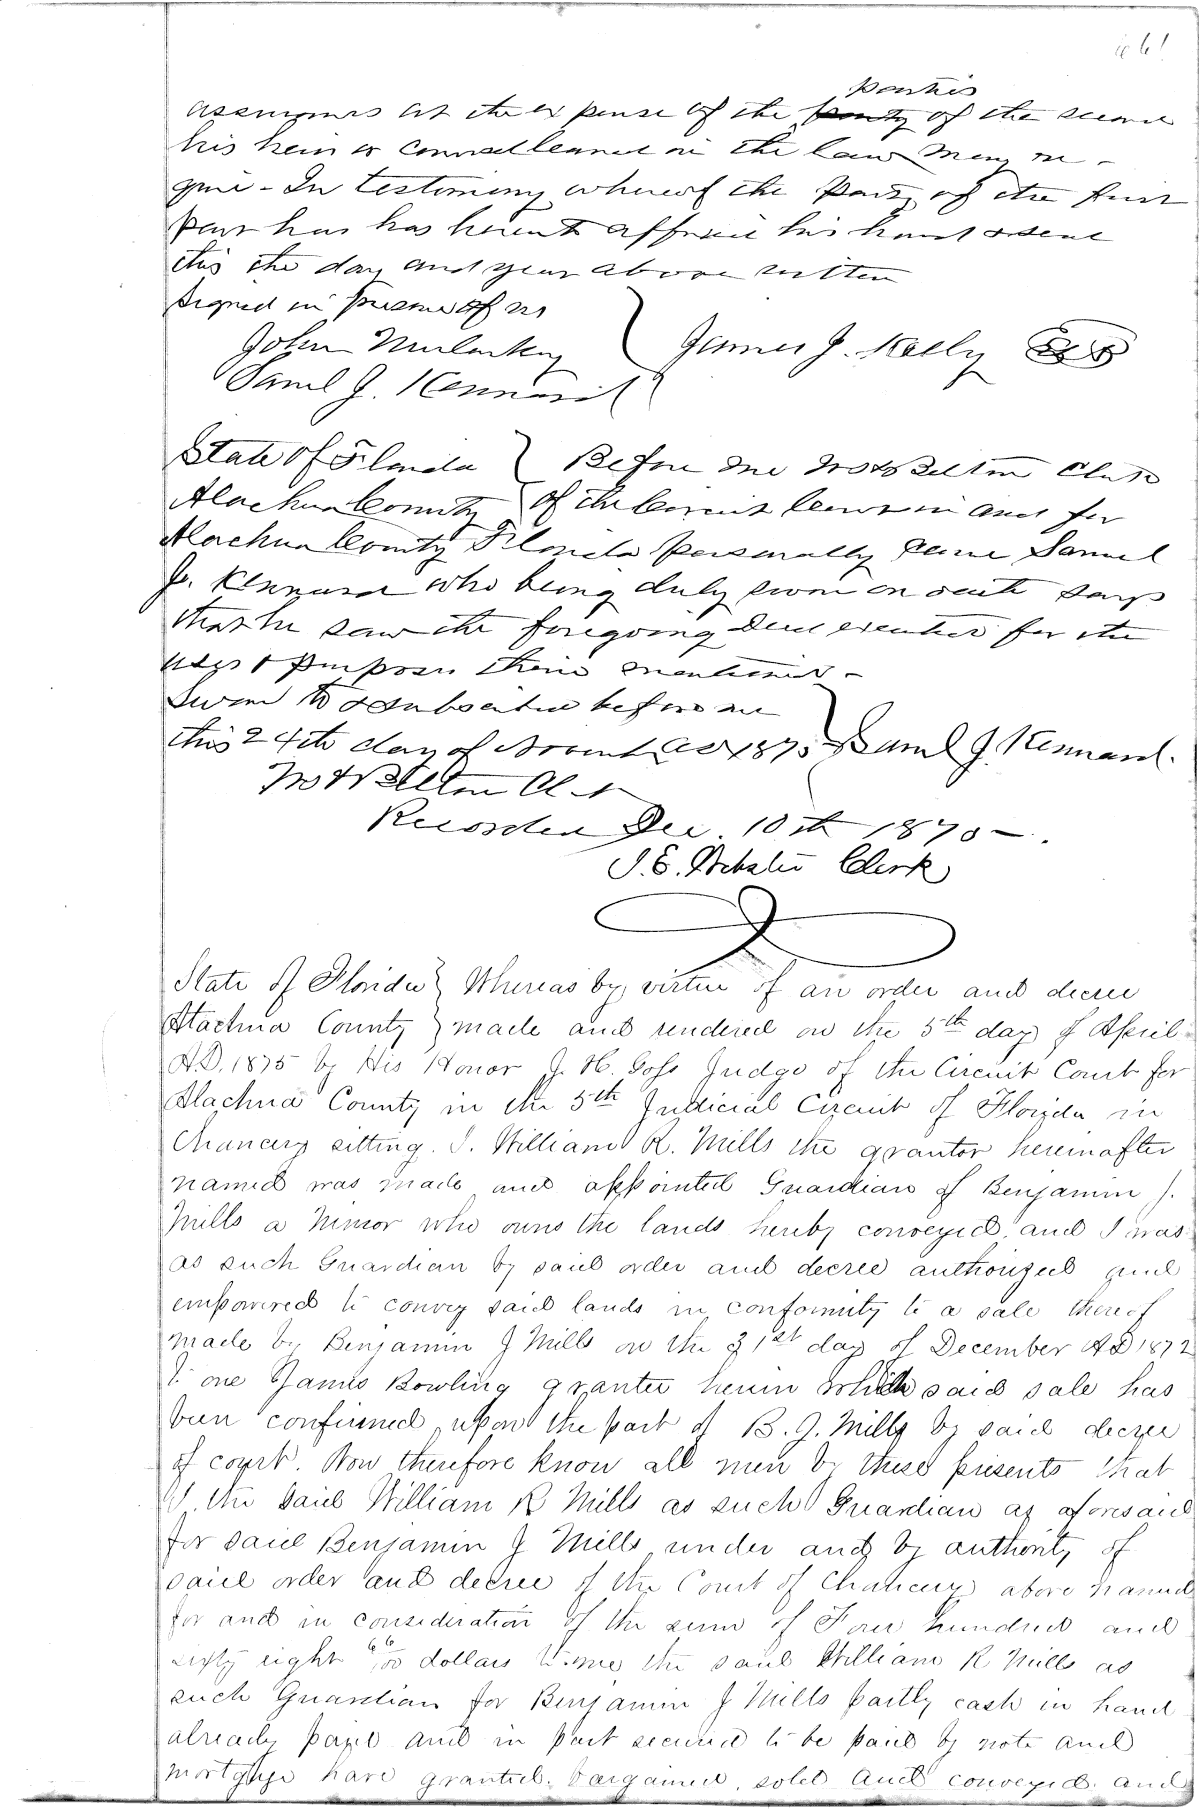 661
parties
assurances at the expense of the party of the second
his heirs or counsel learned in the law may re-
quire - In testimony whereof the party of the first
part has has hereunto affixed his hand & seal
this the day and year above written
Signed in presence of us
John Mularkey } James J. Kelly Seal
Saml J. Kennard
State of Florida } Before me Belton Clerk
Alachua County } of the Circuit Court in and for
Alachua County Florida personally came Samuel
J. Kennard who being duly sworn on oath says
that he saw the foregoing Deed executed for the
uses & purposes therein mentioned -
Sworn to & subscribed before me
this 24th day of November AD 1875 } Saml J. Kennard.
Belton Clk
Recorded Dec. 10th 1875 -.
J. E. Webster Clerk
State of Florida } Whereas by virtue of an order and decree
Alachua County } made and rendered on the 5th day of April
A.D. 1875 by His Honor J. H. Goss Judge of the Circuit Court for
Alachua County in the 5th Judicial Circuit of Florida in
Chancery sitting. I. William R. Mills the grantor hereinafter
named was made and appointed Guardian of Benjamin J.
Mills a Minor who owns the lands hereby conveyed, and I was
as such Guardian by said order and decree authorized and
empowered to convey said lands in conformity to a sale thereof
made by Benjamin J Mills on the 31st day of December AD 1872
to one James Bowling grantee herein which said sale has
been confirmed upon the part of B. J. Mills by said decree
of court. Now therefore know all men by these presents that
I, the said William R Mills as such Guardian as aforesaid
for said Benjamin J Mills under and by authority of
said order and decree of the Court of Chancery above named
for and in consideration of the sum of Four hundred and
sixty eight 66/100 dollars to me the said William R Mills as
such Guardian for Benjamin J Mills partly cash in hand
already paid and in part secured to be paid by note and
mortgage have granted, bargained, sold and conveyed, and